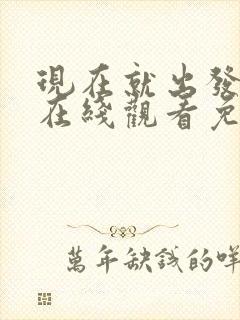 現在就出發
在綫觀看免
萬年缺錢的咩